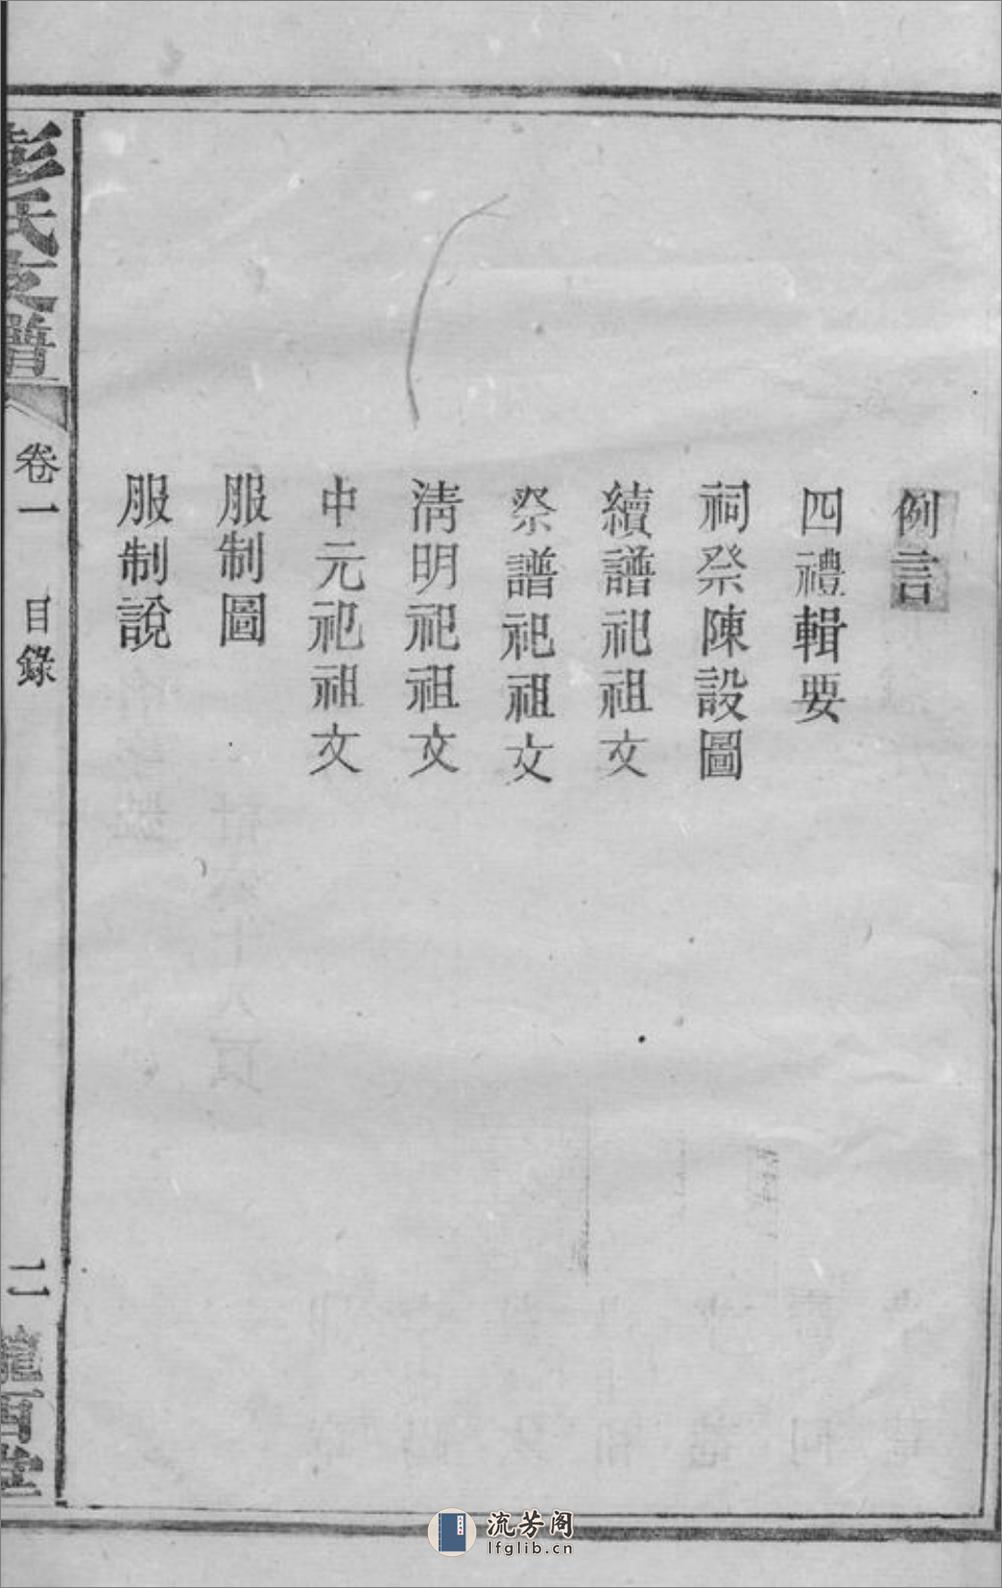 例言
四禮輯要
祠祭陳設圖
續譜祀祖文
祭譜祀祖文
清明祀祖文
中元祀祖文
服制圖
服制說
彭氏支譜
卷一 目錄
二
堂
流芳阁
lfglib.cn